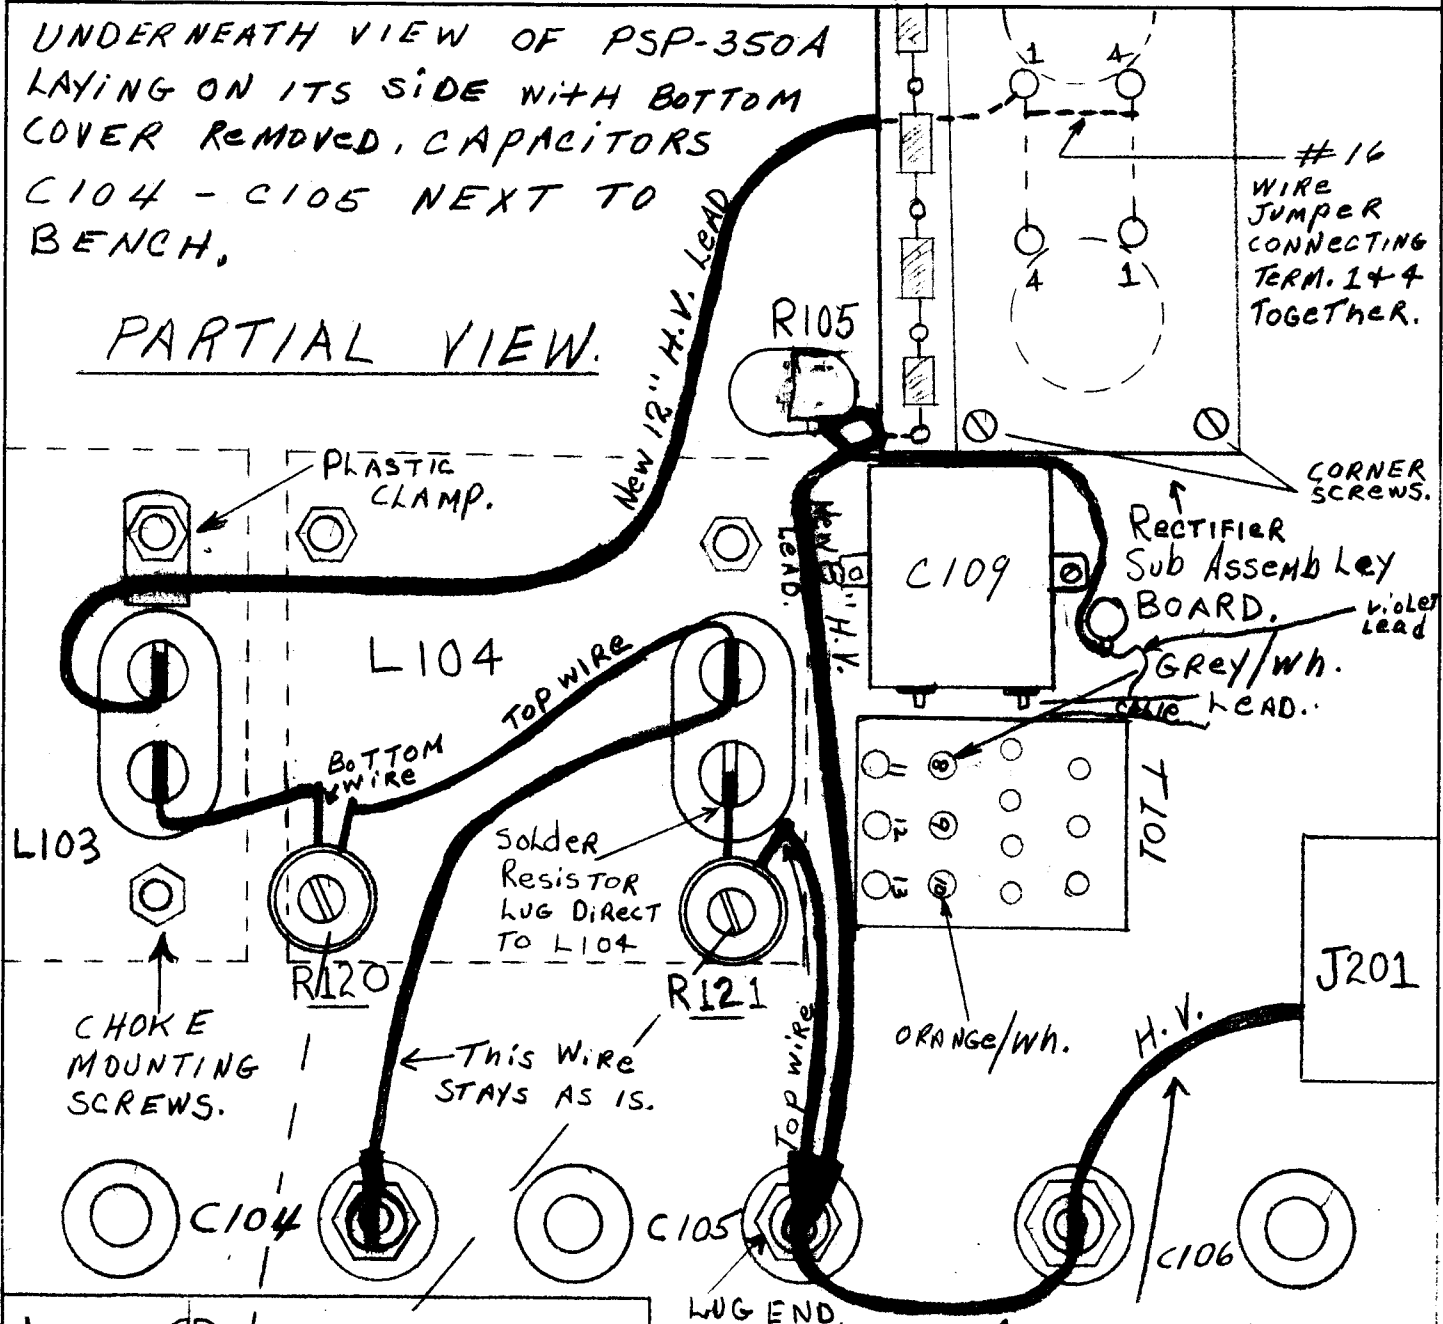 UNDERNEATH VIEW OF PSP-350A
LAYING ON ITS SIDE WITH BOTTOM
COVER REMOVED. CAPACITORS
C104 - C105 NEXT TO
BENCH.
PARTIAL VIEW.
1 4
4 1
#16
WIRE
JUMPER
CONNECTING
TERM. 1 & 4
TOGETHER.
New 12" H.V. LEAD
R105
PLASTIC
CLAMP.
CORNER
SCREWS.
RECTIFIER
Sub Assemb Ley
BOARD.
violet
Lead
GREY/Wh.
LEAD.
C109
New 8" H.V.
LEAD.
L104
TOP WIRE
BOTTOM
WIRE
L103
Solder
Resistor
LUG DIRECT
TO L104
11 8
12 9
13 10
T101
J201
R120
R121
CHOKE
MOUNTING
SCREWS.
This Wire
STAYS AS IS.
Top wire
ORANGE/Wh.
H.V.
C104
C105
C106
LUG END.